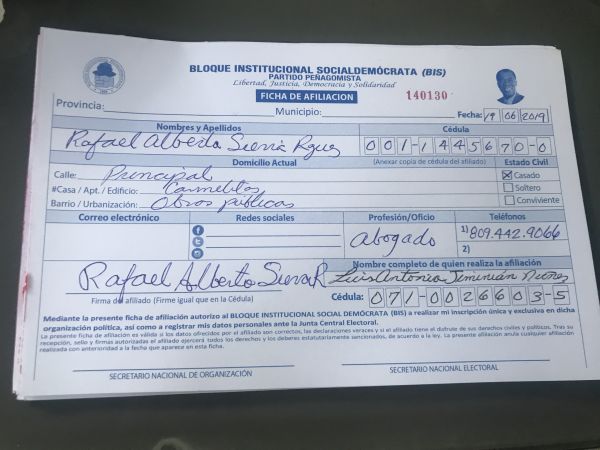 BLOQUE INSTITUCIONAL SOCIALDEMÓCRATA (BIS)
PARTIDO PEÑAGOMISTA
Libertad, Justicia, Democracia y Solidaridad
FICHA DE AFILIACION
140130
Provincia:
Municipio:
Fecha: 19 06 2019
Nombres y Apellidos
Cédula
Rafael Alberto Sierra Rguez
001-1445670-0
Domicilio Actual
(Anexar copia de cédula del afiliado)
Estado Civil
Calle: Principal
Casado
#Casa / Apt. / Edificio: Carmelitos
Soltero
Barrio / Urbanización: Obras públicas
Conviviente
Correo electrónico
Redes sociales
Profesión/Oficio
Teléfonos
Abogado
1) 809.442.9066
2)
Nombre completo de quien realiza la afiliación
Rafael Alberto Sierra R
Luis Antonio Jiminián Nuñez
Firma del afiliado (Firme igual que en la Cédula)
Cédula: 071-0026603-5
Mediante la presente ficha de afiliación autorizo al BLOQUE INSTITUCIONAL SOCIAL DEMÓCRATA (BIS) a realizar mi inscripción única y exclusiva en dicha
organización política, así como a registrar mis datos personales ante la Junta Central Electoral.
La presente afiliación es válida si los datos ofrecidos por el afiliado son correctos, las declaraciones veraces y si el afiliado tiene el disfrute de sus derechos civiles y políticos. Tras su
recepción, sello y firmas autorizadas el afiliado ejercerá todos los derechos y los deberes estatutariamente sancionados, de acuerdo a la ley. La presente afiliación anula cualquier afiliación
realizada con anterioridad a la fecha que aparece en esta ficha.
SECRETARIO NACIONAL DE ORGANIZACIÓN
SECRETARIO NACIONAL ELECTORAL